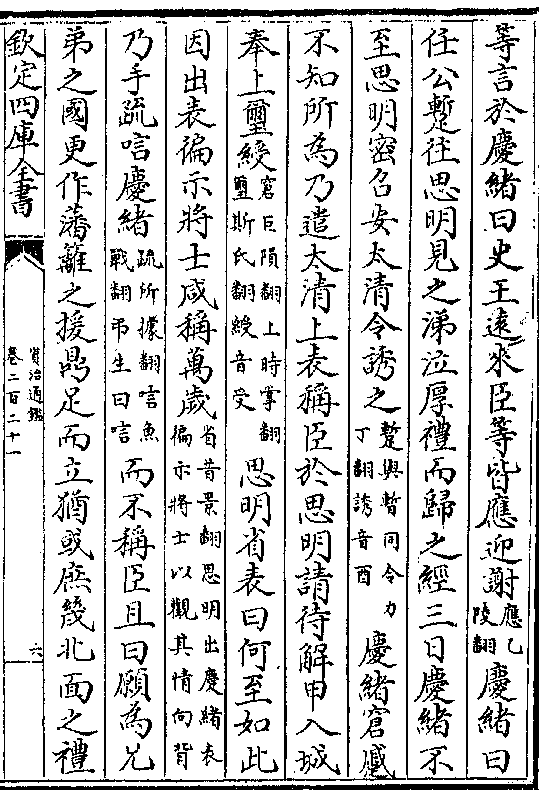 等言於慶緒曰史王遠來臣等皆應迎謝應乙陵翻慶緒曰
任公蹔往思明見之涕泣厚禮而歸之經三日慶緒不
至思明密召安太清令誘之蹔與暫同令力丁翻誘音酉慶緒窘蹙
不知所為乃遣太清上表稱臣於思明請待解甲入城
奉上璽綬窘巨隕翻上時掌翻璽斯氏翻綬音受思明省表曰何至如此
因出表徧示將士咸稱萬歲省昔景翻思明出慶緒表徧示將士以觀其情向背
乃手疏唁慶緒疏所據翻唁魚戰翻弔生曰唁而不稱臣且曰願為兄
弟之國更作藩籬之援鼎足而立猶或庶幾北面之禮
欽定四庫全書
資治通鑑
卷二百二十一
六